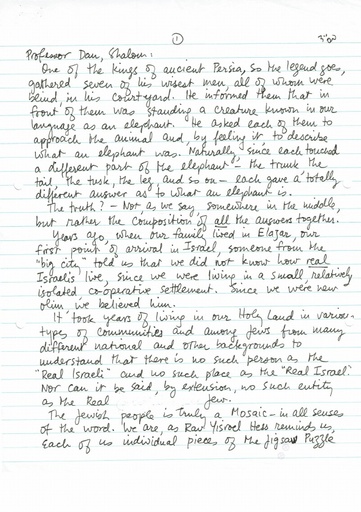 1
בס"ד
Professor Dan, Shalom:
One of the kings of ancient Persia, so the legend goes,
gathered seven of his wisest men, all of whom were
blind, in his courtyard. He informed them that in
front of them was standing a creature known in our
language as an elephant. He asked each of them to
approach the animal and by feeling it to describe
what an elephant was. Naturally, since each touched
a different part of the elephant - the trunk the
tail, the tusk, the leg, and so on - each gave a totally
different answer as to what an elephant is.
The truth? - Not, as we say, somewhere in the middle,
but rather the composition of all the answers together.
Years ago, when our family lived in Elazar, our
first point of arrival in Israel, someone from the
"big city" told us that we did not know how real
Israelis live, since we were living in a small relatively
isolated co-operative settlement. Since we were new
olim, we believed him.
It took years of living in our Holy Land in various
types of communities and among Jews from many
different national and other backgrounds to
understand that there is no such person as the
"Real Israeli" and no such place as the "Real Israel."
Nor can it be said, by extension, no such entity
as the Real Jew.
The Jewish people is truly a Mosaic - in all senses
of the word. We are, as Rav Yisroel Hess reminds us,
Each of us individual pieces of the Jigsaw Puzzle